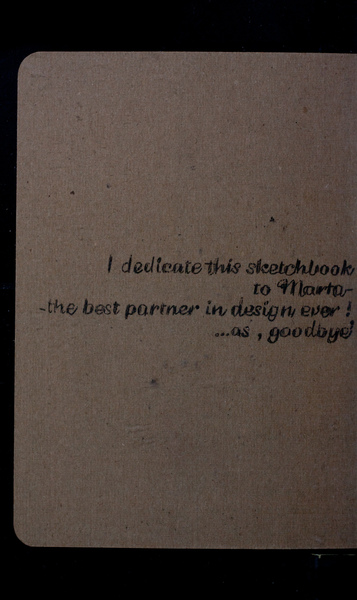 I dedicate this sketchbook
to Marta-
-the best partner in design ever!
...as, goodbye